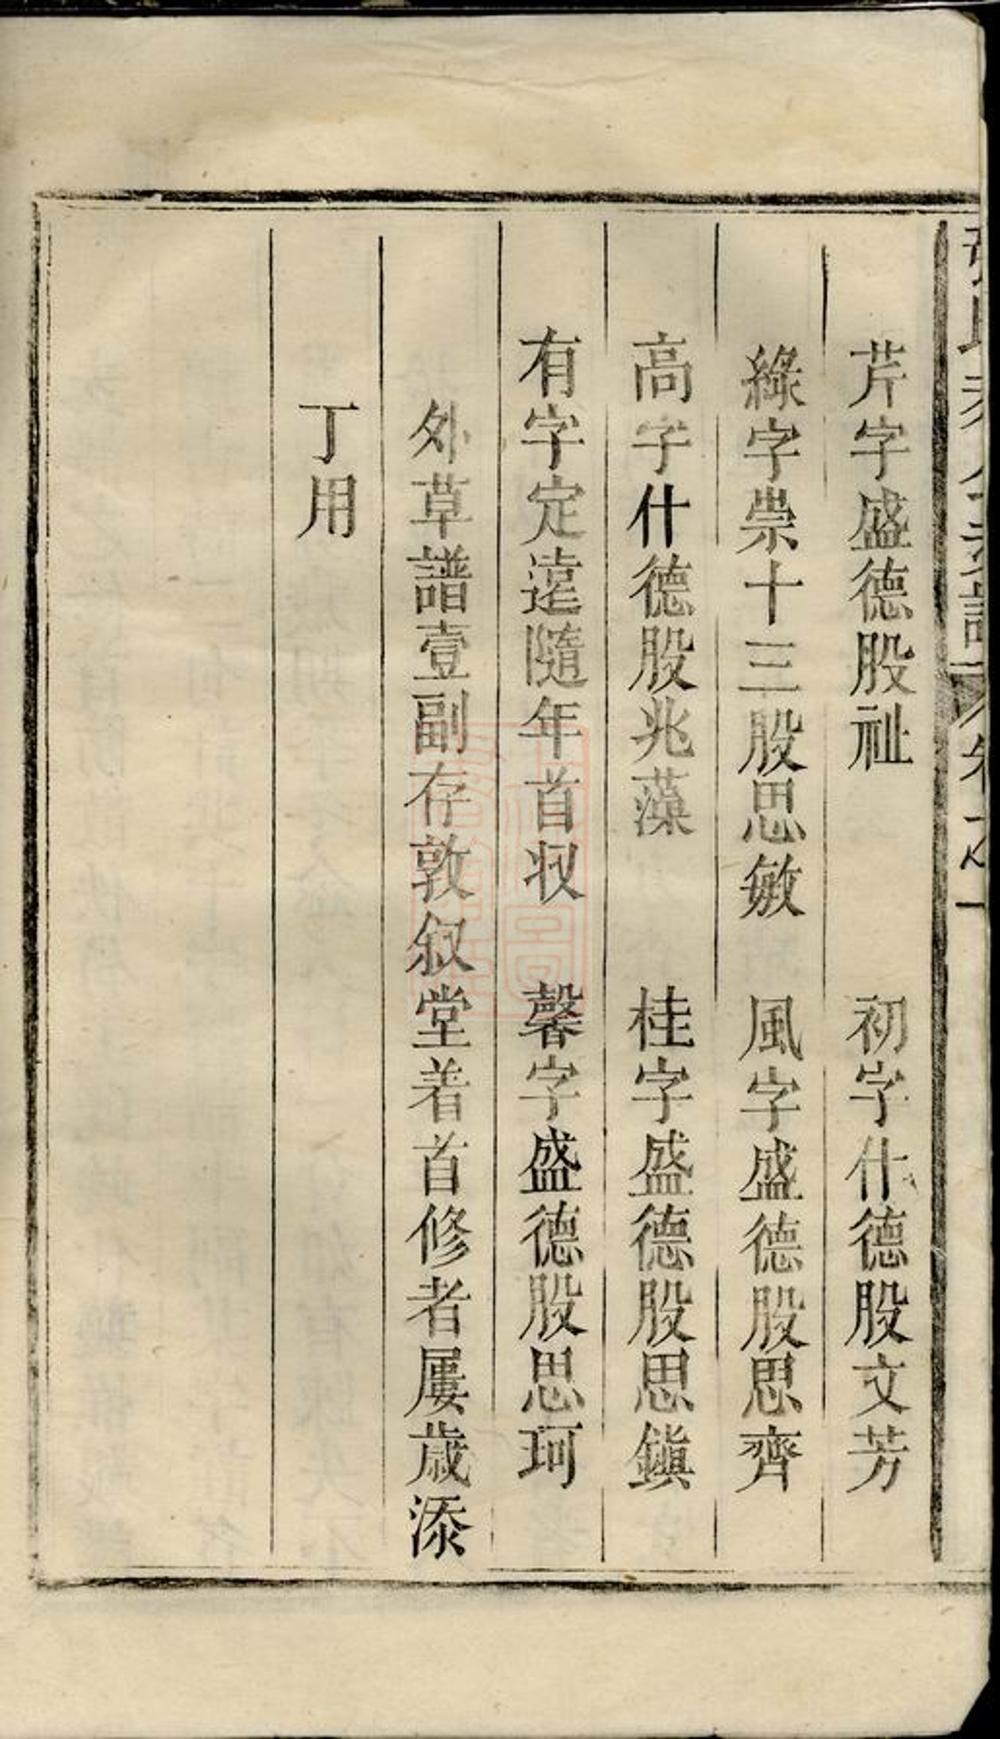 芹字盛德股祉 初字什德股文芳
綠字崇十三股思敏 風字盛德股思齊
高字什德股兆藻 桂字盛德股思鎮
有字定遠隨年首収 馨字盛德股思珂
外草譜壹副存敦叙堂着首修者屢歲添
丁用